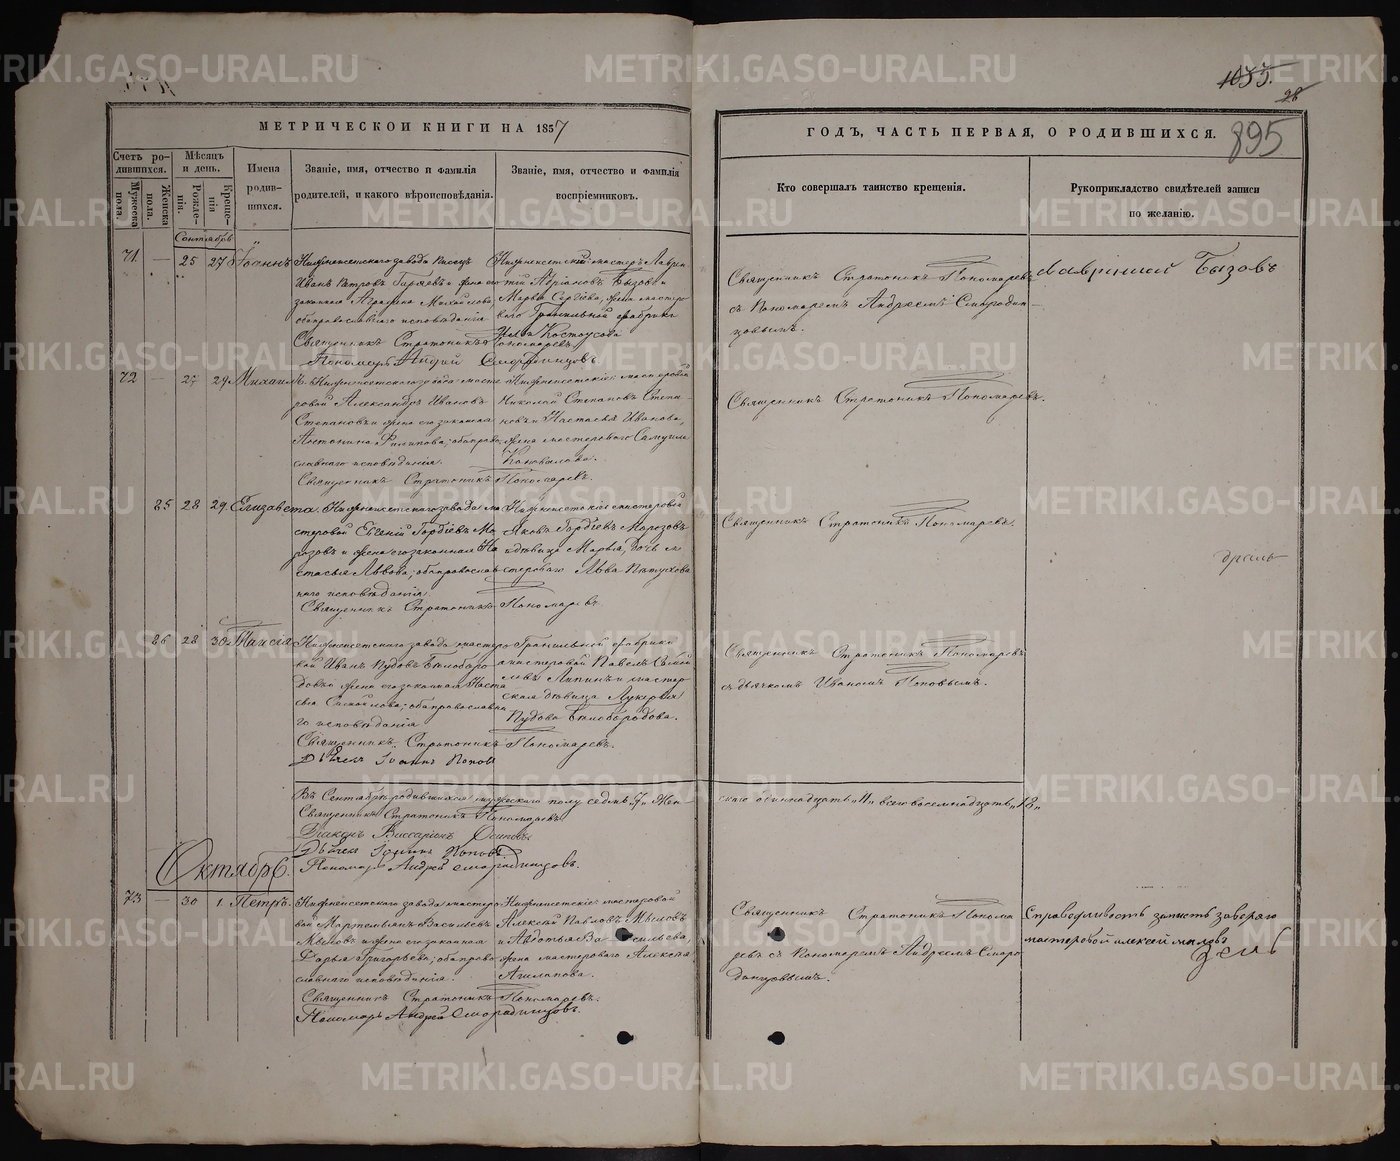 1033.
28
895
МЕТРИЧЕСКОЙ КНИГИ НА 1857
ГОДЪ, ЧАСТЬ ПЕРВАЯ, О РОДИВШИХСЯ.
Счетъ родившихся.
Мужеска пола.
Женска пола.
Мѣсяцъ и день.
Рожденія.
Крещенія
Имена родившихся.
Званіе, имя, отчество и фамилія
родителей, и какого вѣроисповѣданія.
Званіе, имя, отчество и фамилія
воспріемниковъ.
Кто совершалъ таинство крещенія.
Рукоприкладство свидѣтелей записи
по желанію.
Сентябрь
71 — 25 27 Іоаннъ
Нижнеисетскаго завода писецъ
Иванъ Петровъ Гиряевъ и жена его
законная Аграфена Михайлова,
обаправославнаго исповѣданія
Священникъ Стратоникъ Пономаревъ
Пономарь Андрей Смородинцовъ
Нижнеисетскій мастеръ Лаврентій Адріановъ Бызовъ и
Марья Сергіева, жена мастероваго Гранильной фабрики
Костоусова
Священникъ Стратоникъ Пономаревъ
съ Пономаремъ Андреемъ Смородинцовымъ.
Лаврінтій Бызовъ
72 — 27 29 Михаилъ
Нижнеисетскаго завода мастеровой Александръ Ивановъ
Степановъ и жена его законная
Антонина Филипова, обаправославнаго исповѣданія.
Священникъ Стратоникъ Пономаревъ.
Нижнеисетскій мастеровой
Николай Степановъ Степановъ и Настасья Иванова,
жена мастероваго Самуила
Коновалова.
Священникъ Стратоникъ Пономаревъ.
25 28 29 Елизавета
Нижнеисетскаго завода мастеровой Евгеній Гордѣевъ Морозовъ и жена его законная Настасья Львова, обаправославнаго исповѣданія
Священникъ Стратоникъ Пономаревъ
Нижнеисетскій мастеровой
Яковъ Гордѣевъ Морозовъ
и дѣвица Марья, дочь мастероваго Льва Пѣтухова
Священникъ Стратоникъ Пономаревъ.
26 28 30 Таисія
Нижнеисетскаго завода мастеровой Иванъ Пудовъ Бѣлобородовъ и жена его законная Настасья Самойлова; обаправославнаго исповѣданія
Священникъ Стратоникъ Пономаревъ.
Дьячекъ Іоаннъ Поповъ
Гранильной фабрики
мастеровой Павелъ
Липинъ и мастерская дѣвица Лукерья
Пудова Бѣлобородова.
Священникъ Стратоникъ Пономаревъ
съ дьячкомъ Иваномъ Поповымъ.
Въ Сентябрѣ родившихся мужескаго полу семь „7„ Женскаго одиннадцать „11„ всего восемнадцать „18„
Священникъ Стратоникъ Пономаревъ
Діаконъ Виссаріонъ
Дьячекъ Іоаннъ Поповъ
Пономарь Андрей Смородинцовъ.
Октябрь.
73 — 30 1. Петръ.
Нижнеисетскаго завода мастеровой Мартемьянъ Васильевъ
Мыловъ и жена его законная
Дарья Григорьева, обаправославнаго исповѣданія.
Священникъ Стратоникъ Пономаревъ.
Пономарь Андрей Смородинцовъ.
Нижнеисетскій мастеровой
Алексѣй Павловъ Мыловъ
и Авдотья Васильева,
жена мастероваго Алексѣя
Священникъ Стратоникъ Пономаревъ съ Пономаремъ Андреемъ Смородинцовымъ.
Справедливость записи заверяю
мастеровой алексей милов
METRIKI.GASO-URAL.RU